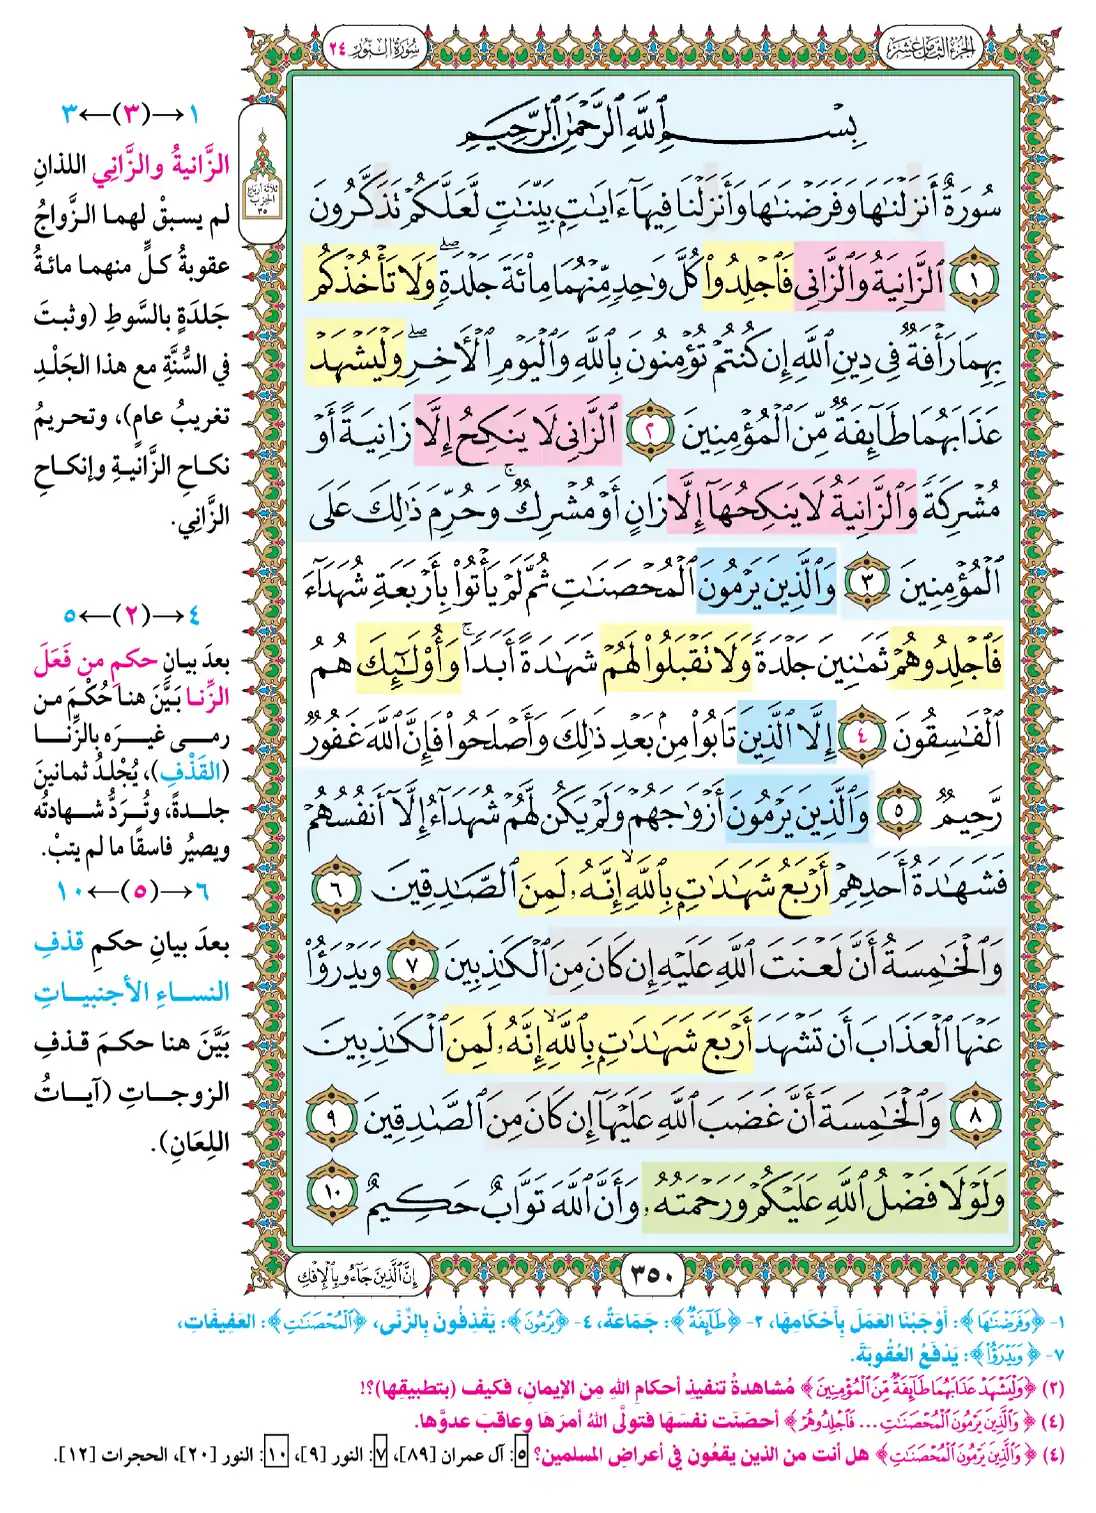 الجزء الثامن عشر
سورة النور ٢٤
ثلاثة أرباع
الحزب
٣٥
بِسْمِ ٱللَّهِ ٱلرَّحْمَٰنِ ٱلرَّحِيمِ
سُورَةٌ أَنزَلْنَٰهَا وَفَرَضْنَٰهَا وَأَنزَلْنَا فِيهَآ ءَايَٰتٍۭ بَيِّنَٰتٍ لَّعَلَّكُمْ تَذَكَّرُونَ
١ ٱلزَّانِيَةُ وَٱلزَّانِى فَٱجْلِدُوا۟ كُلَّ وَٰحِدٍ مِّنْهُمَا مِا۟ئَةَ جَلْدَةٍ ۖ وَلَا تَأْخُذْكُم
بِهِمَا رَأْفَةٌ فِى دِينِ ٱللَّهِ إِن كُنتُمْ تُؤْمِنُونَ بِٱللَّهِ وَٱلْيَوْمِ ٱلْءَاخِرِ ۖ وَلْيَشْهَدْ
عَذَابَهُمَا طَآئِفَةٌ مِّنَ ٱلْمُؤْمِنِينَ ٢ ٱلزَّانِى لَا يَنكِحُ إِلَّا زَانِيَةً أَوْ
مُشْرِكَةً وَٱلزَّانِيَةُ لَا يَنكِحُهَآ إِلَّا زَانٍ أَوْ مُشْرِكٌ ۚ وَحُرِّمَ ذَٰلِكَ عَلَى
ٱلْمُؤْمِنِينَ ٣ وَٱلَّذِينَ يَرْمُونَ ٱلْمُحْصَنَٰتِ ثُمَّ لَمْ يَأْتُوا۟ بِأَرْبَعَةِ شُهَدَآءَ
فَٱجْلِدُوهُمْ ثَمَٰنِينَ جَلْدَةً وَلَا تَقْبَلُوا۟ لَهُمْ شَهَٰدَةً أَبَدًا ۚ وَأُو۟لَٰٓئِكَ هُمُ
ٱلْفَٰسِقُونَ ٤ إِلَّا ٱلَّذِينَ تَابُوا۟ مِنۢ بَعْدِ ذَٰلِكَ وَأَصْلَحُوا۟ فَإِنَّ ٱللَّهَ غَفُورٌ
رَّحِيمٌ ٥ وَٱلَّذِينَ يَرْمُونَ أَزْوَٰجَهُمْ وَلَمْ يَكُن لَّهُمْ شُهَدَآءُ إِلَّآ أَنفُسُهُمْ
فَشَهَٰدَةُ أَحَدِهِمْ أَرْبَعُ شَهَٰدَٰتٍۭ بِٱللَّهِ ۙ إِنَّهُۥ لَمِنَ ٱلصَّٰدِقِينَ ٦
وَٱلْخَٰمِسَةُ أَنَّ لَعْنَتَ ٱللَّهِ عَلَيْهِ إِن كَانَ مِنَ ٱلْكَٰذِبِينَ ٧ وَيَدْرَؤُا۟
عَنْهَا ٱلْعَذَابَ أَن تَشْهَدَ أَرْبَعَ شَهَٰدَٰتٍۭ بِٱللَّهِ ۙ إِنَّهُۥ لَمِنَ ٱلْكَٰذِبِينَ
٨ وَٱلْخَٰمِسَةَ أَنَّ غَضَبَ ٱللَّهِ عَلَيْهَآ إِن كَانَ مِنَ ٱلصَّٰدِقِينَ ٩
وَلَوْلَا فَضْلُ ٱللَّهِ عَلَيْكُمْ وَرَحْمَتُهُۥ وَأَنَّ ٱللَّهَ تَوَّابٌ حَكِيمٌ ١٠
٣٥٠
إِنَّ ٱلَّذِينَ جَآءُو بِٱلْإِفْكِ
١→(٣)←٣
الزَّانيةُ والزَّانِي اللذانِ
لم يسبقْ لهما الزَّواجُ
عقوبةُ كلٍّ منهما مائةُ
جَلدَةٍ بالسَّوطِ (وثبتَ
في السُّنَّةِ مع هذا الجَلْدِ
تغريبُ عامٍ)، وتحريمُ
نكاحِ الزَّانيةِ وإنكاحِ
الزَّانِي.
٤→(٢)←٥
بعدَ بيانِ حكمِ من فَعَلَ
الزِّنا بَيَّنَ هنا حُكْمَ من
رمى غيرَه بالزِّنا
(القَذْفِ)، يُجْلدُ ثمانينَ
جلدةً، وتُرَدُّ شهادتُه
ويصيُر فاسقًا ما لم يتبْ.
٦→(٥)←١٠
بعدَ بيانِ حكمِ قذفِ
النساءِ الأجنبياتِ
بَيَّنَ هنا حكمَ قذفِ
الزوجاتِ (آياتُ
اللِعَانِ).
١- ﴿وَفَرَضْنَٰهَا﴾: أَوْجَبْنَا العَمَلَ بِأَحْكَامِهَا، ٢- ﴿طَآئِفَةٌ﴾: جَمَاعَةٌ، ٤- ﴿يَرْمُونَ﴾: يَقْذِفُونَ بِالزِّنَى، ﴿ٱلْمُحْصَنَٰتِ﴾: العَفِيفَاتِ،
٧- ﴿وَيَدْرَؤُا۟﴾: يَدْفَعُ العُقُوبَةَ.
(٢) ﴿وَلْيَشْهَدْ عَذَابَهُمَا طَآئِفَةٌ مِّنَ ٱلْمُؤْمِنِينَ﴾ مُشاهدةُ تنفيذِ أحكامِ اللهِ مِن الإيمانِ، فكيف (بتطبيقِها)؟!
(٤) ﴿وَٱلَّذِينَ يَرْمُونَ ٱلْمُحْصَنَٰتِ ... فَٱجْلِدُوهُمْ﴾ أحصَنَت نفسَهَا فتولَّى اللهُ أمرَهَا وعاقبَ عدوَّها.
(٤) ﴿وَٱلَّذِينَ يَرْمُونَ ٱلْمُحْصَنَٰتِ﴾ هل أنت من الذين يقعُون في أعراضِ المسلمين؟ ٥: آل عمران [٨٩]، ٧: النور [٩]، ١٠: النور [٢٠]، الحجرات [١٢].